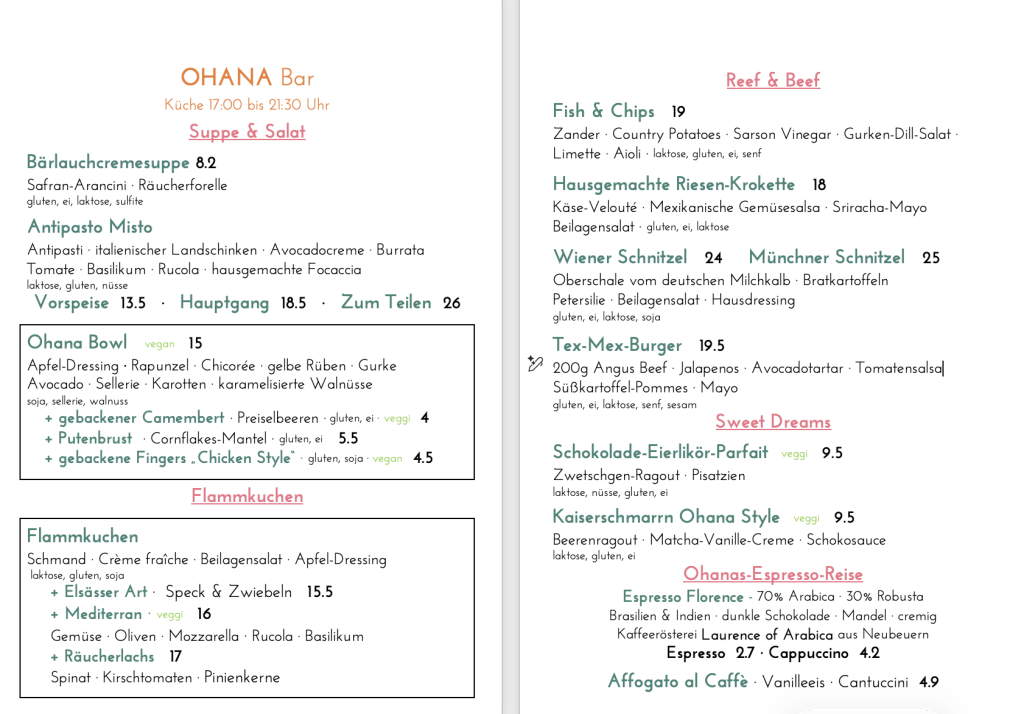 OHANA Bar
Küche 17:00 bis 21:30 Uhr
Suppe & Salat
Bärlauchcremesuppe 8.2
Safran-Arancini · Räucherforelle
gluten, ei, laktose, sulfite
Antipasto Misto
Antipasti · italienischer Landschinken · Avocadocreme · Burrata
Tomate · Basilikum · Rucola · hausgemachte Focaccia
laktose, gluten, nüsse
Vorspeise 13.5 · Hauptgang 18.5 · Zum Teilen 26
Ohana Bowl vegan 15
Apfel-Dressing · Rapunzel · Chicorée · gelbe Rüben · Gurke
Avocado · Sellerie · Karotten · karamelisierte Walnüsse
soja, sellerie, walnuss
+ gebackener Camembert · Preiselbeeren · gluten, ei · veggi 4
+ Putenbrust · Cornflakes-Mantel · gluten, ei 5.5
+ gebackene Fingers „Chicken Style“ · gluten, soja · vegan 4.5
Flammkuchen
Flammkuchen
Schmand · Crème fraîche · Beilagensalat · Apfel-Dressing
laktose, gluten, soja
+ Elsässer Art · Speck & Zwiebeln 15.5
+ Mediterran · veggi 16
Gemüse · Oliven · Mozzarella · Rucola · Basilikum
+ Räucherlachs 17
Spinat · Kirschtomaten · Pinienkerne
Reef & Beef
Fish & Chips 19
Zander · Country Potatoes · Sarson Vinegar · Gurken-Dill-Salat ·
Limette · Aioli · laktose, gluten, ei, senf
Hausgemachte Riesen-Krokette 18
Käse-Velouté · Mexikanische Gemüsesalsa · Sriracha-Mayo
Beilagensalat · gluten, ei, laktose
Wiener Schnitzel 24 Münchner Schnitzel 25
Oberschale vom deutschen Milchkalb · Bratkartoffeln
Petersilie · Beilagensalat · Hausdressing
gluten, ei, laktose, soja
Tex-Mex-Burger 19.5
200g Angus Beef · Jalapenos · Avocadotartar · Tomatensalsa
Süßkartoffel-Pommes · Mayo
gluten, ei, laktose, senf, sesam
Sweet Dreams
Schokolade-Eierlikör-Parfait veggi 9.5
Zwetschgen-Ragout · Pisatzien
laktose, nüsse, gluten, ei
Kaiserschmarrn Ohana Style veggi 9.5
Beerenragout · Matcha-Vanille-Creme · Schokosauce
laktose, gluten, ei
Ohanas-Espresso-Reise
Espresso Florence - 70% Arabica · 30% Robusta
Brasilien & Indien · dunkle Schokolade · Mandel · cremig
Kaffeerösterei Laurence of Arabica aus Neubeuern
Espresso 2.7 · Cappuccino 4.2
Affogato al Caffè · Vanilleeis · Cantuccini 4.9